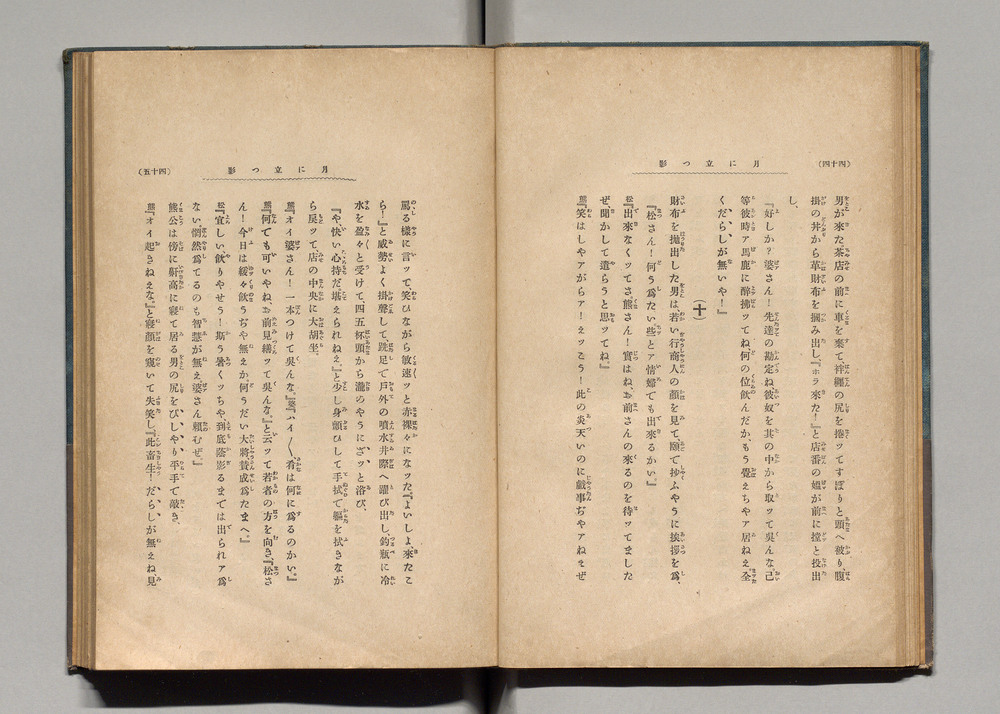 (四十四)
月に立つ影
男が來た茶店の前に車を棄て袢纒の尻を捲ッてすぽりと頭へ彼り、腹
掛の丼から革財布を摑み出し、『ホラ來た!』と店番の媼が前に撻と投出
し、
『好しか?婆さん!先達の勘定ね、彼奴を其の中から取ッて吳んな、己
等彼時ア馬鹿に醉拂ッてね何の位飮んだか、もう覺えちやア居ねえ全
くだらしが無いや!』
(十)
財布を拋出した男は若い行商人の顏を見て頤で抄ふやうに挨拶を爲、
『松さん!何う爲たい些とア情婦でも出來るかい。』
松『出來なくッてさ熊さん!實はね、お前さんの來るのを待ッてました
ぜ聞かして遣らうと思ッてね。』
熊『笑はしやアがらア!えッこう!此の炎天いのに戯事ぢやアねえぜ
(四十五)
月に立つ影
罵る樣に言ッて、笑ひながら敏速ッと赤裸々になッた『よいしよ、來たこ
ら!』と威勢よく掛聲して跣足で戶外の噴水井際へ躍び出し、釣瓶に冷
水を盈々と受けて、四五杯頭から瀧のやうにざッと浴び、
『や、快い心持だ堪えられねえ』と少し身顫ひして手拭で軀を拭きなが
ら戾ッて店の中央に大胡坐。
熊『オイ婆さん!一本つけて吳んな。』婆『ハイ〱肴は何に爲るのかい。』
熊『何でも可いやね、お前見繕ッて吳んな。』と云ッて若者の方を向き、『松さ
ん!今日は緩々飮うぢや無えか何うだい大將賛成爲たまへ。』
松『宜しい飮りやせう!斯う暑くッちや到底蔭影るまでは出られア爲
ない、惘然爲てるのも智慧が無え婆さん賴むぜ。』
熊公は傍に鼾高に寢て居る男の尻をびしやり平手で敲き、
熊『オイ起きねえな』と寢顏を窺いて失笑し、『此畜生!だらしが無えね見